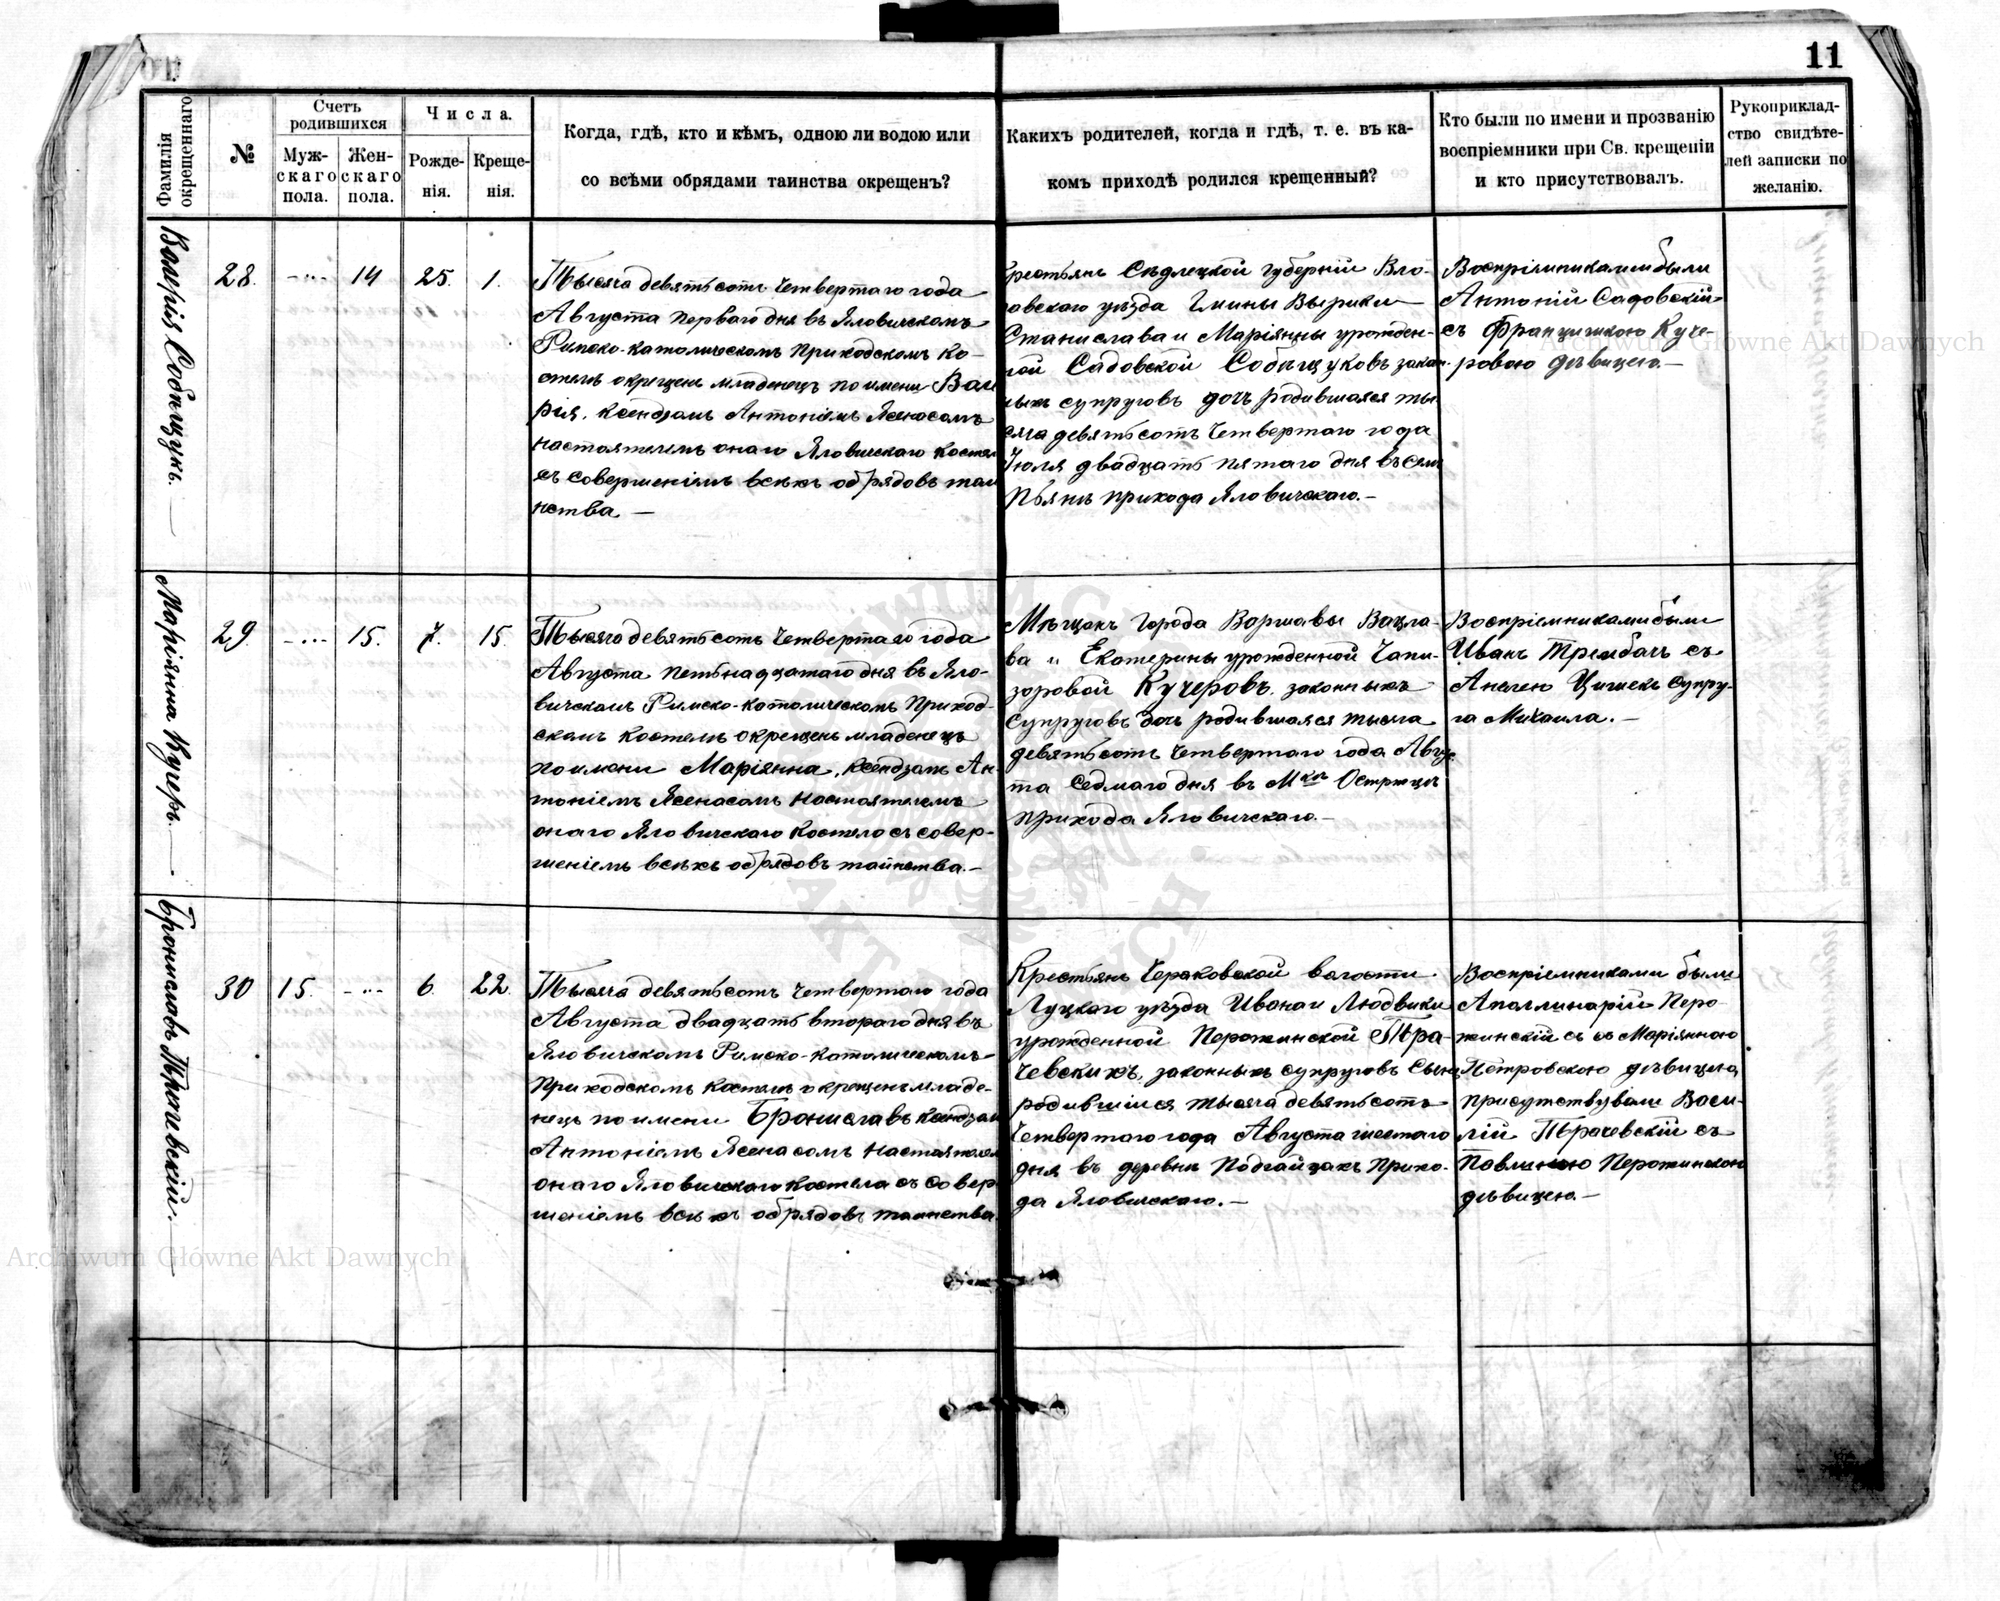 11
Фамилія
окрещеннаго
№
Счетъ
родившихся
Муж-
скаго
пола.
Жен-
скаго
пола.
Числа.
Рожде-
нія.
Креще-
нія.
Когда, гдѣ, кто и кѣмъ, одною ли водою или
со всѣми обрядами таинства окрещенъ?
Какихъ родителей, когда и гдѣ, т. е. въ ка-
комъ приходѣ родился крещенный?
Кто были по имени и прозванію
воспріемники при Св. крещеніи
и кто присутствовалъ.
Рукоприклад-
ство свидѣте-
лей записки по
желанію.
Валерія Собѣщукъ. —
28.
14
25.
1.
Тысяча девятьсотъ четвертаго года
Августа перваго дня въ Яловичскомъ
Римско-католическомъ приходскомъ ко-
стелѣ окрещенъ младенецъ по имени Вале
рія, ксендзомъ Антоніемъ Ясенасомъ
настоятелемъ онаго Яловичскаго костела
съ совершеніемъ всѣхъ обрядовъ таи
нства —
крестьянъ Сѣдлецкой губерніи Вло-
давскаго уѣзда Гмины Вырики
Станислава и Маріянны урожден-
ной Садовской Собѣщуковъ закон-
ныхъ супруговъ дочь родившаяся ты-
сяча девятьсотъ четвертаго года
Іюля двадцать пятаго дня въ селѣ
Пьянѣ прихода Яловичскаго. —
Воспріемниками были
Антоній Садовскій
съ Францишкою Куче-
ровою дѣвицею. —
Маріянна Кучеръ. —
29.
15.
7.
15.
Тысяча девятьсотъ четвертаго года
Августа пятьнадцатаго дня въ Яло-
вичскомъ Римско-католическомъ приход-
скомъ костелѣ окрещенъ младенецъ
по имени Маріянна, ксендзомъ Ан-
тоніемъ Ясенасомъ настоятелемъ
онаго Яловичскаго костела съ совер-
шеніемъ всѣхъ обрядовъ таинства. —
Мѣщанъ города Варшавы Вацла-
ва и Екатерины урожденной
Кучеровъ, законныхъ
супруговъ дочь родившаяся тысяча
девятьсотъ четвертаго года Авгус-
та седмаго дня въ Мкѣ Острожцѣ
прихода Яловичскаго. —
Воспріемниками были
Иванъ Трембачъ съ
супру-
га Михаила. —
Брониславъ Трачевскій. —
30
15.
6.
22.
Тысяча девятьсотъ четвертаго года
Августа двадцать втораго дня въ
Яловичскомъ Римско-католическомъ
приходскомъ костелѣ окрещенъ младе-
нецъ по имени Брониславъ ксендзомъ
Антоніемъ Ясенасомъ настоятелемъ
онаго Яловичскаго костела съ совер
шеніемъ всѣхъ обрядовъ таинства.
Крестьянъ волости
Луцкаго уѣзда Ивана и Людвики
урожденной Перожинской Тра-
чевскихъ, законныхъ супруговъ сынъ
родившійся тысяча девятьсотъ
четвертаго года Августа шестаго
дня въ деревнѣ Подгайцахъ прихо-
да Яловичскаго. —
Воспріемниками были
Аполлинарій Перо-
жинскій съ Маріянною
Петровскою дѣвицею
присутствували Васи-
лій Трачевскій съ
Павлиною Перожинскою
дѣвицею. —
Archiwum Główne Akt Dawnych
Archiwum Główne Akt Dawnych